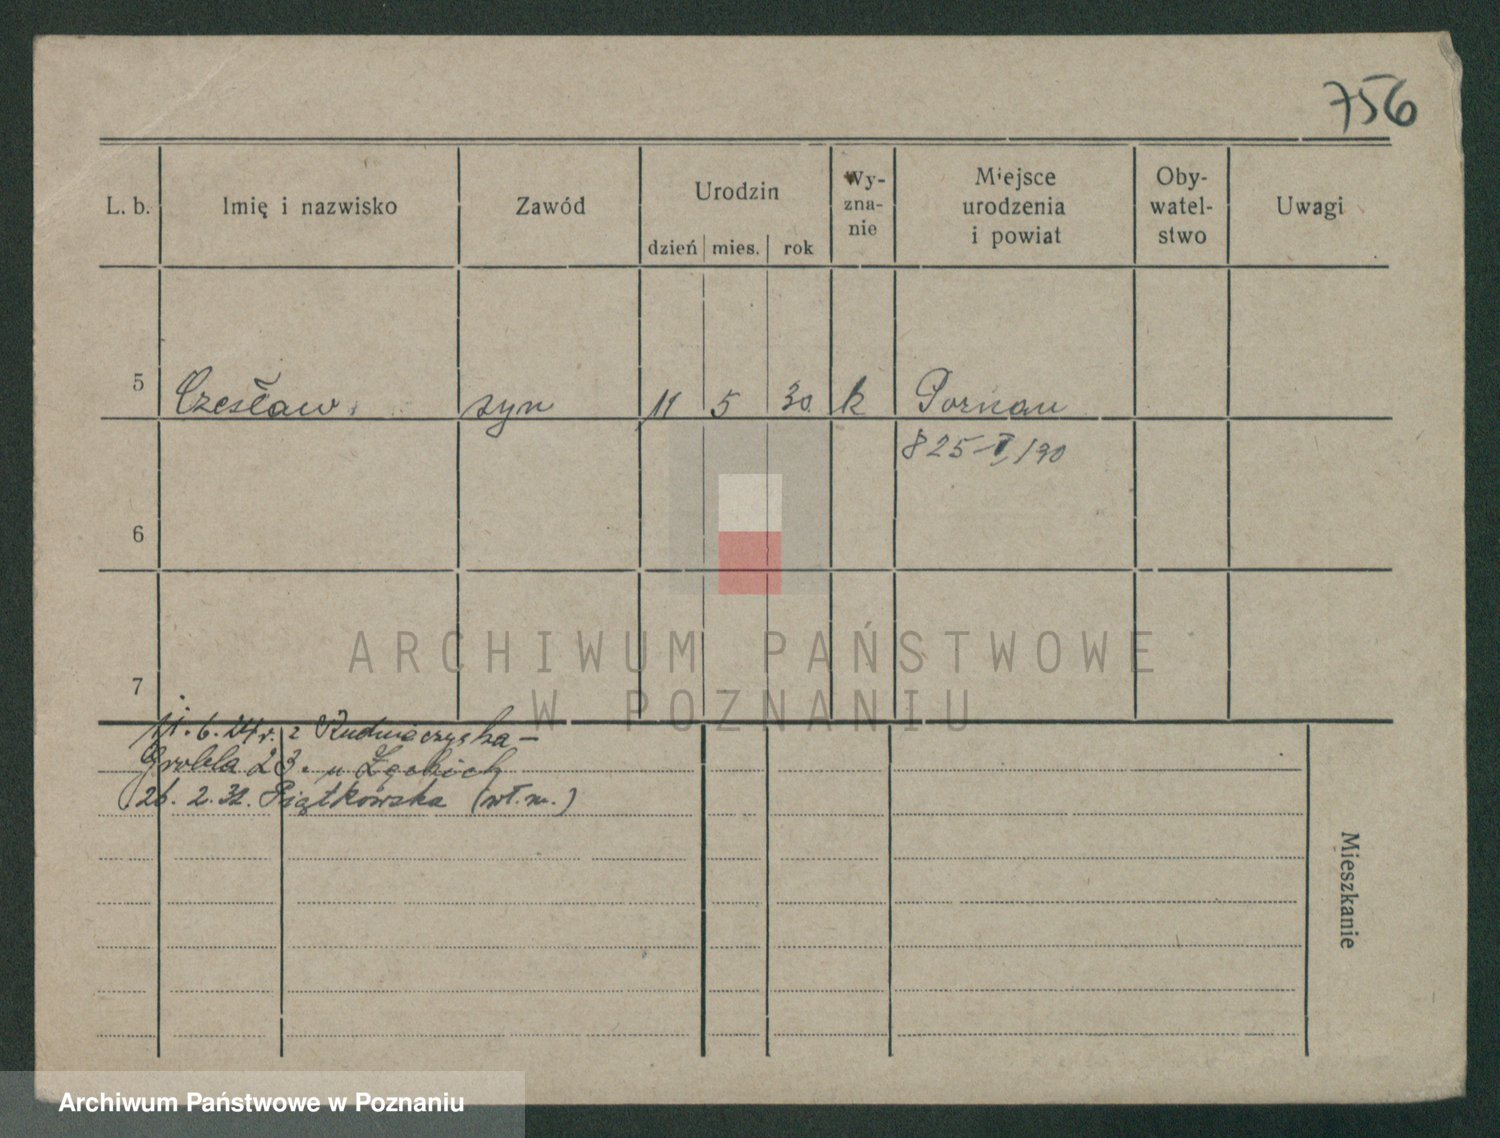 756
L. b.
Imię i nazwisko
Zawód
Urodzin
dzień mies. rok
Wy-
zna-
nie
Miejsce
urodzenia
i powiat
Oby-
watel-
stwo
Uwagi
5 Czesław syn 11 5 30 k Poznau
825 /30
6
7
11. 6. z
Grobla 23. u
26. 2. 32. Piątkowska (wł. m.)
Mieszkanie
ARCHIWUM PAŃSTWOWE
W POZNANIU
Archiwum Państwowe w Poznaniu